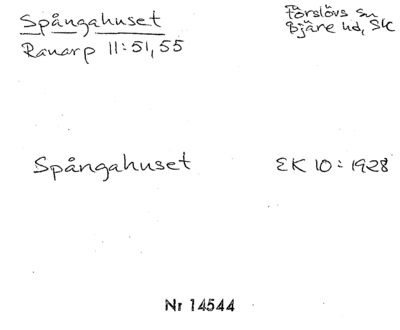 Spångahuset
Förslövs sn
Ranarp 11:51,55
Bjäre hd, Sk
Spångahuset
EK 10 = 1928
Nr 14544